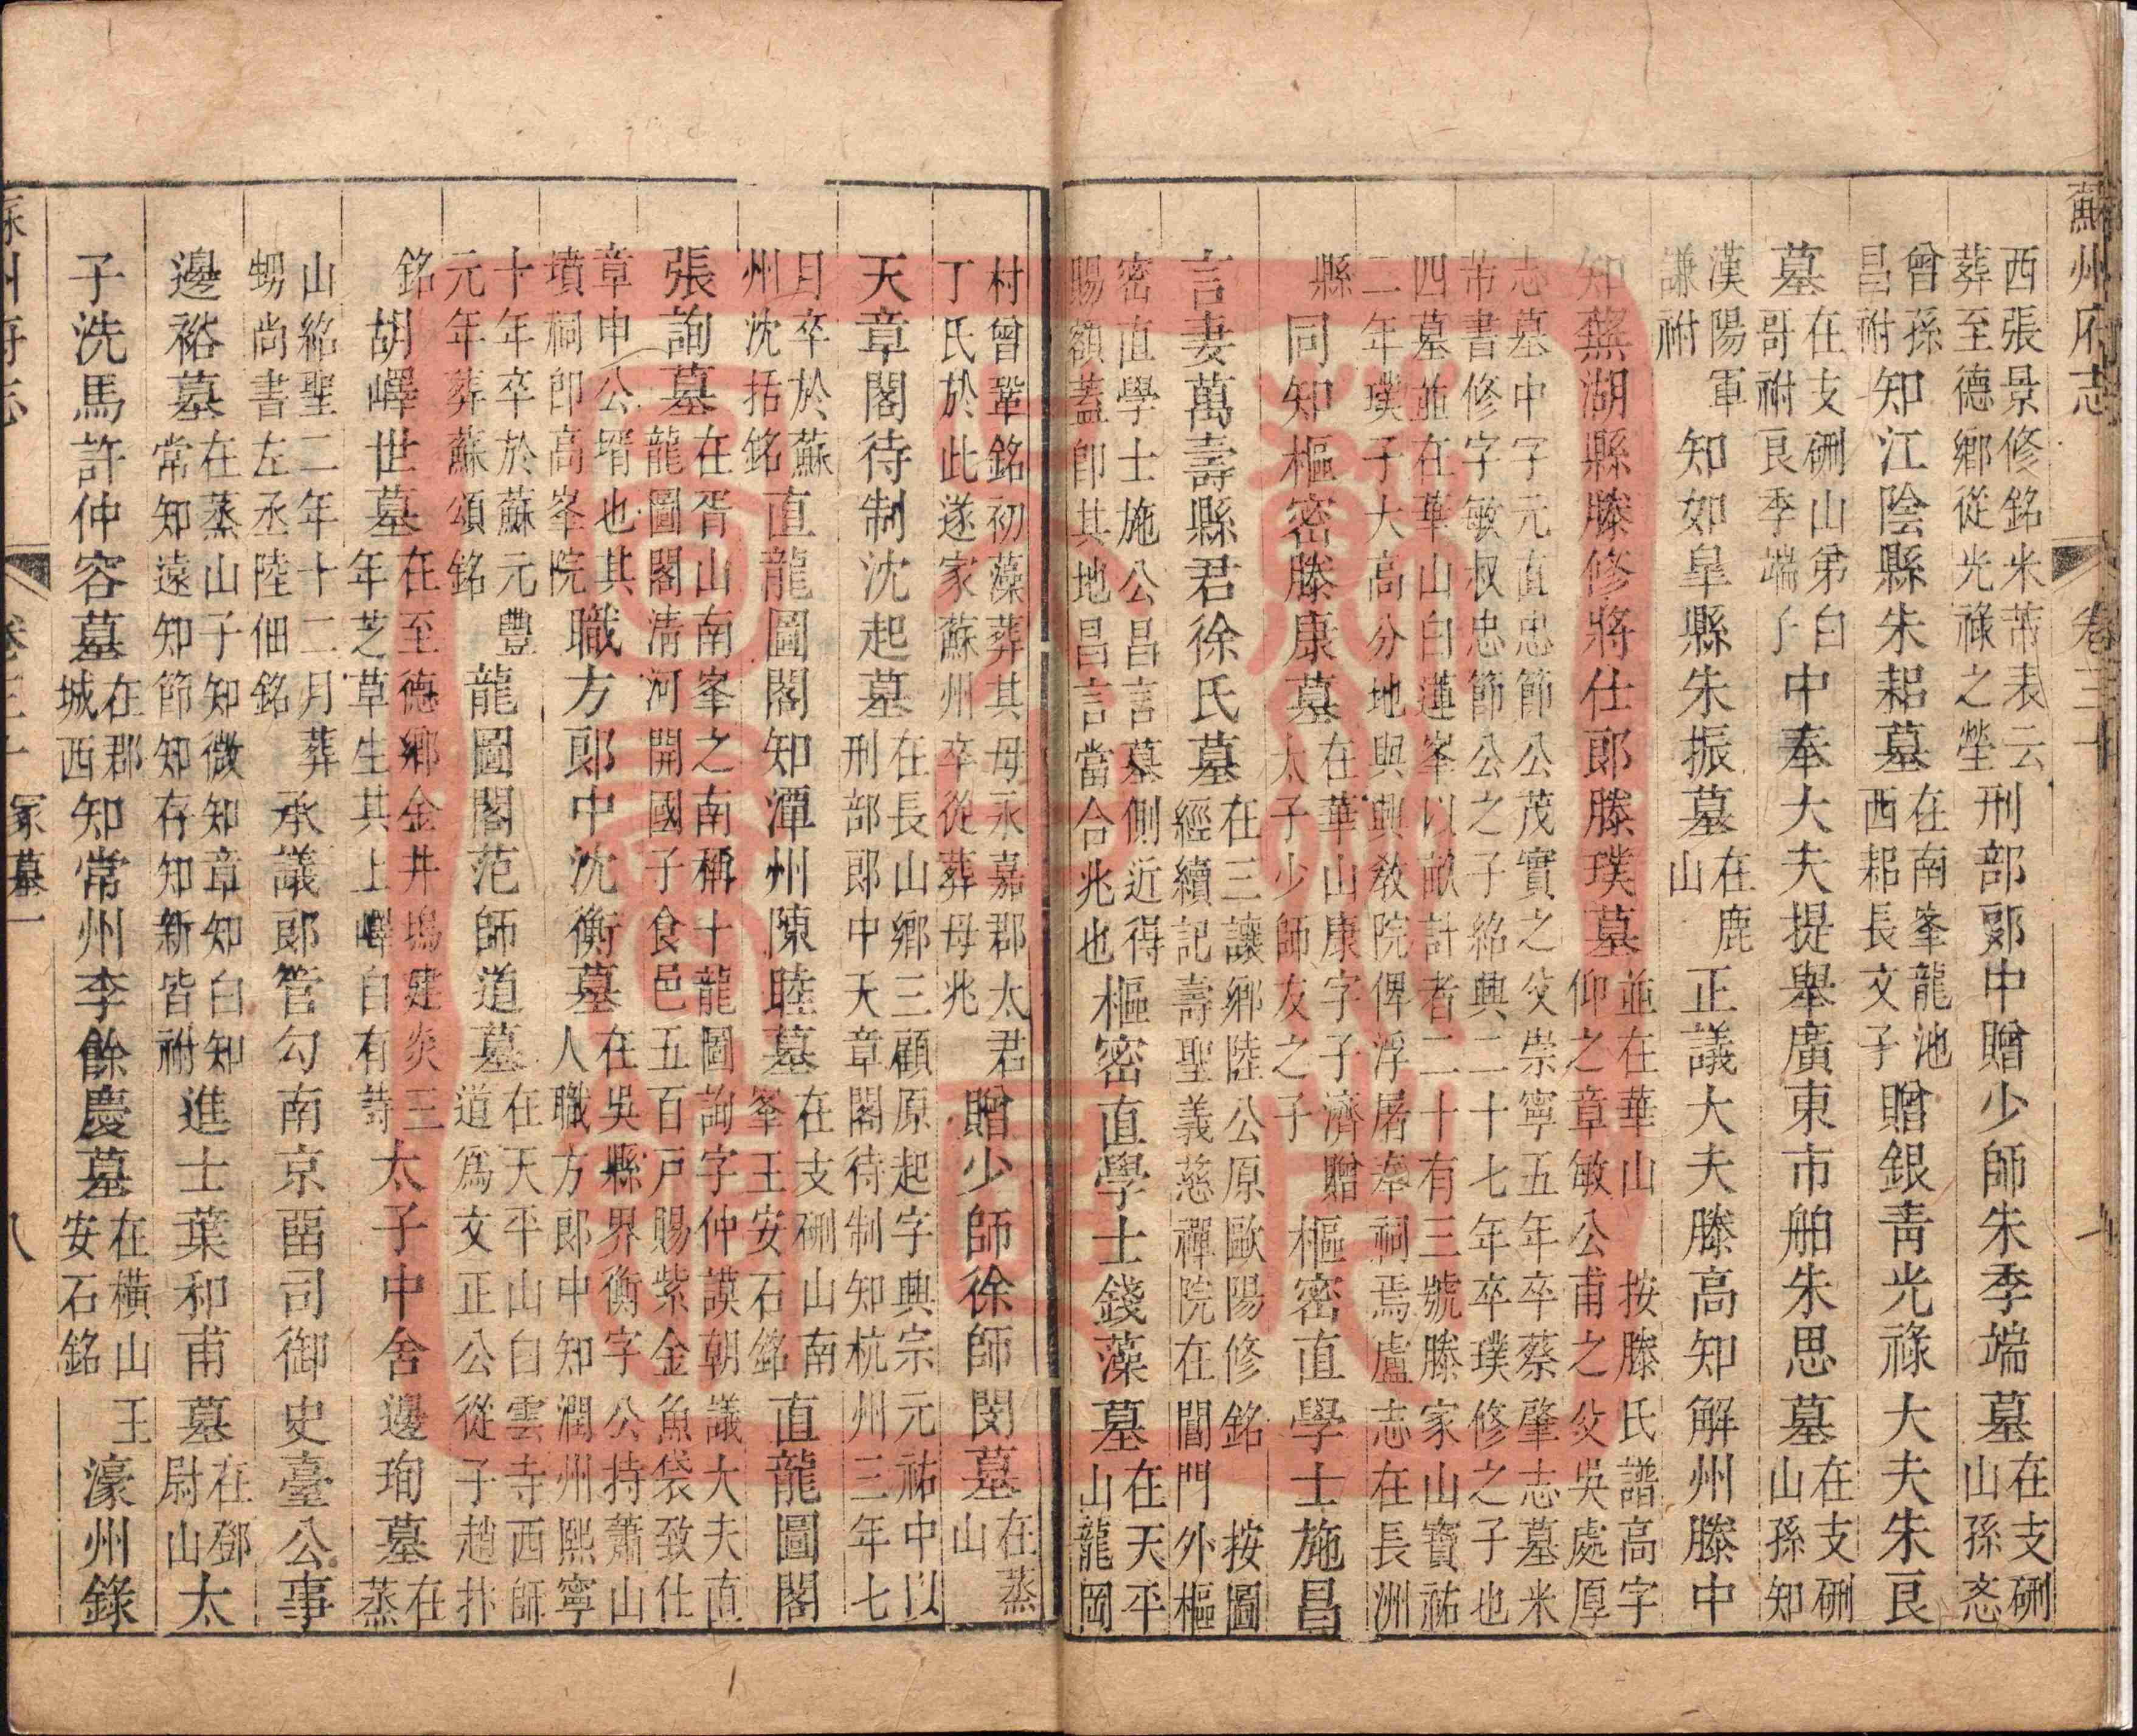 蘇州府志 卷三十
西張景修銘米芾表云葬至德鄉從光祿之塋刑部郎中贈少師朱季端墓在支硎山孫忞
曾孫昌祔知江陰縣朱耜墓在南峯龍池西耜長文子贈銀青光祿大夫朱良
墓在支硎山弟白哥祔良季端子中奉大夫提舉廣東市舶朱思墓在支硎山孫知
漢陽軍謙祔知如皐縣朱振墓在鹿山正議大夫滕高知解州滕中
知蕪湖縣滕修將仕郎滕璞墓並在華山按滕氏譜高字仰之章敏公甫之父吳處厚
志墓中字元直忠節公茂實之父崇寧五年卒蔡肇志墓米芾書修字敏叔忠節公之子紹興二十七年卒璞修之子也
四墓並在華山白蓮峯以畝計者二十有三號滕家山寶祐二年璞子大高分地與興教院俾浮屠奉祠焉盧志在長洲
縣同知樞密滕康墓在華山康字子濟贈太子少師友之子樞密直學士施昌
言妻萬壽縣君徐氏墓在三讓鄉陸公原歐陽修銘按圖經續記壽聖義慈禪院在閶門外樞
密直學士施公昌言墓側近得賜額蓋卽其地昌言當合兆也樞密直學士錢藻墓在天平山龍岡
村曾鞏銘初藻葬其母永嘉郡太君丁氏於此遂家蘇州卒從葬母兆贈少師徐師閔墓在蒸山
天章閣待制沈起墓在長山鄉三顧原起字興宗元祐中以刑部郎中天章閣待制知杭州三年七
月卒於蘇州沈括銘直龍圖閣知潭州陳睦墓在支硎山南峯王安石銘直龍圖閣
張詢墓在胥山南峯之南稱十龍圖詢字仲謨朝議大夫直龍圖閣清河開國子食邑五百戶賜紫金魚袋致仕
章申公壻也其墳祠卽高峯院職方郎中沈衡墓在吳縣界衡字公持蕭山人職方郎中知潤州熙寧
十年卒於蘇元豐元年葬蘇頌銘龍圖閣范師道墓在天平山白雲寺西師道爲文正公從子趙抃
銘胡嶧世墓在至德鄉金井塢建炎三年芝草生其上嶧自有詩太子中舍邊珣墓在蒸
山紹聖二年十二月葬甥尚書左丞陸佃銘承議郎管勾南京畱司御史臺公事
邊裕墓在蒸山子知微知章知白知常知遠知節知存知新皆祔進士葉和甫墓在鄧尉山太
子洗馬許仲容墓在郡城西知常州李餘慶墓在橫山王安石銘濠州錄
冢墓一 八